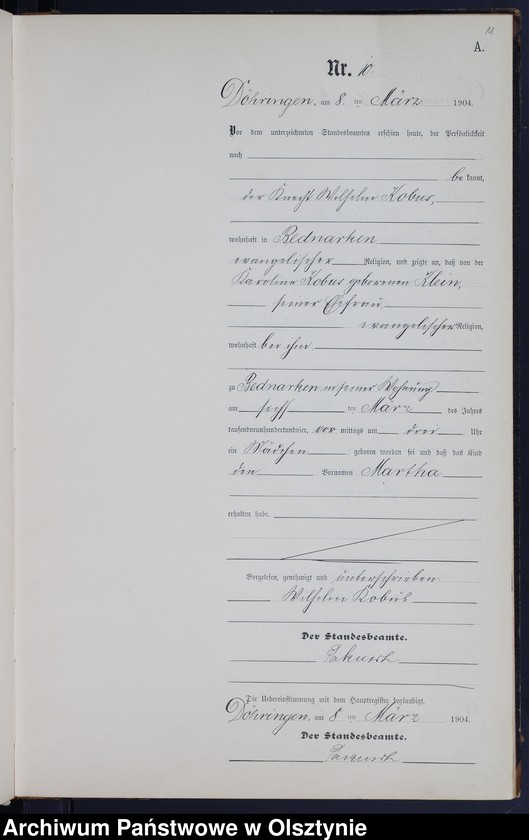 11
A.
Nr. 10
Döhringen, am 8. ten März 1904.
Vor dem unterzeichneten Standesbeamten erschien heute, der Persönlichkeit
nach
be kannt,
der Knecht Wilhelm Kobus,
wohnhaft in Bednarken
evangelischer Religion, und zeigte an, daß von der
Karoline Kobus geborenen Klein,
seiner Ehefrau
evangelischer Religion,
wohnhaft bei ihm
zu Bednarken in seiner Wohnung
am sechs ten März des Jahres
tausendneunhundertundvier, vor mittags um drei Uhr
ein Mädchen geboren worden sei und daß das Kind
den Vornamen Martha
erhalten habe.
Vorgelesen, genehmigt und unterschrieben
Wilhelm Kobus
Der Standesbeamte.
Die Uebereinstimmung mit dem Hauptregister beglaubigt.
Döhringen, am 8 ten März 1904.
Der Standesbeamte.
Archiwum Państwowe w Olsztynie